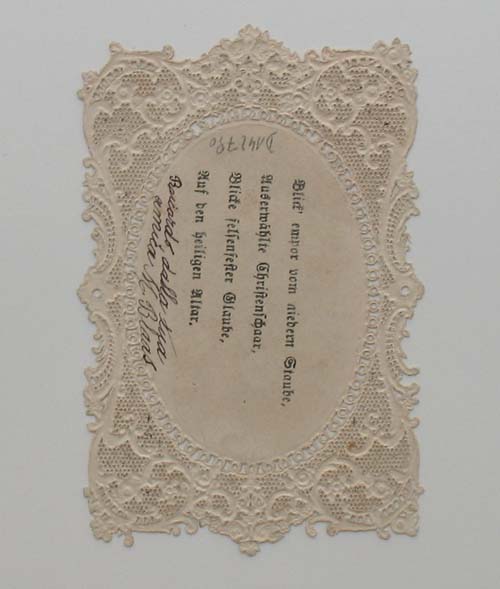 Blick' empor vom niedern Staube,
Auserwählte Christenschaar,
Blicke felsenfester Glaube,
Auf den heiligen Altar.
Ricordo dalla tua
amica A. Blaas
D142790